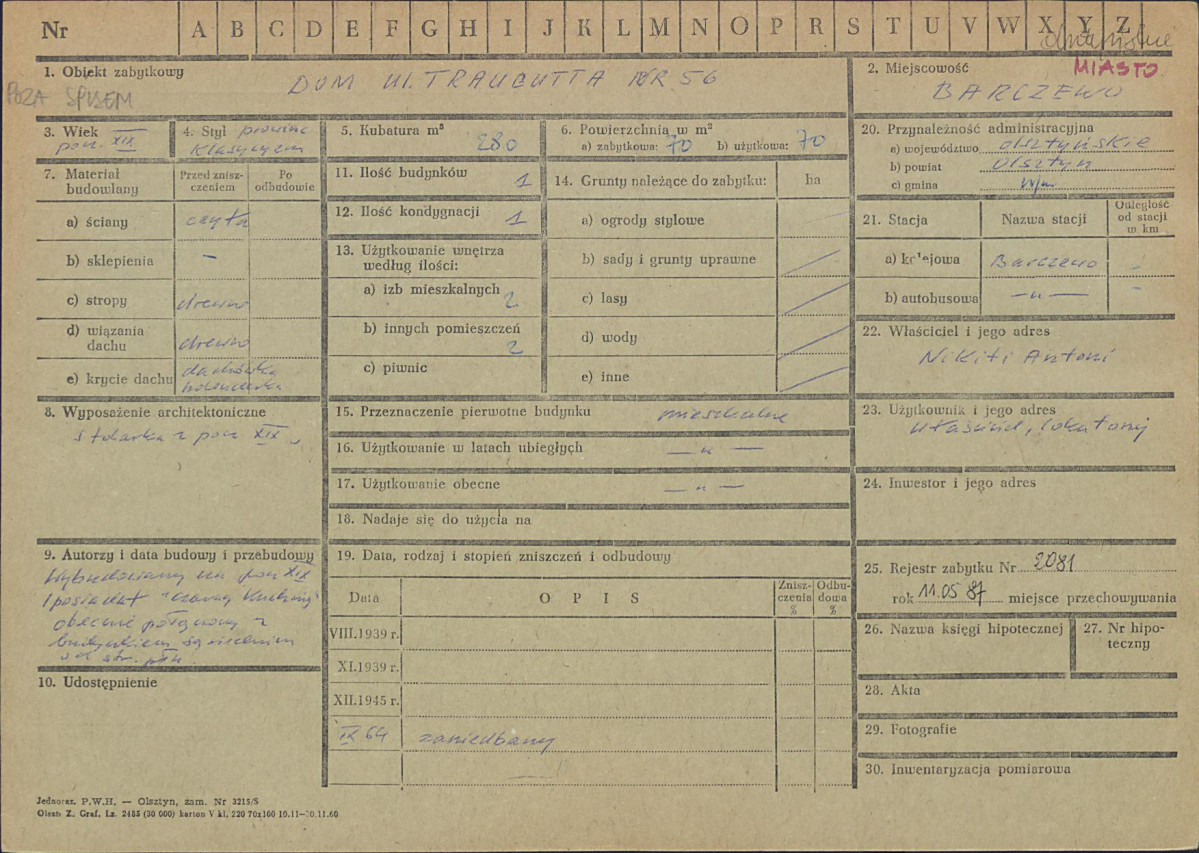 Nr A B C D E F G H I J K L M N O P R S T U V W X Y Z
1. Obiekt zabytkowy DOM Ul. TRAUGUTTA NR 56
POZA SPISEM
2. Miejscowość MIASTO
BARCZEWO
3. Wiek
pocz. XIX
4. Styl prowinc
klasycyzm
5. Kubatura m³
280
6. Powierzchnia w m²
a) zabytkowa: 70 b) użytkowa: 70
7. Materiał
budowlany
Przed znisz-
czeniem
Po
odbudowie
a) ściany cegła
b) sklepienia –
c) stropy drewno
d) wiązania
dachu drewno
e) krycie dachu dachówka
holenderka
8. Wyposażenie architektoniczne
stolarka z pocz XIX
9. Autorzy i data budowy i przebudowy
Wybudowany na pocz XIX
posiadał "czarną kuchnię"
obecnie połączony z
budynkiem sąsiednim
od str. płn.
10. Udostępnienie
11. Ilość budynków 1
12. Ilość kondygnacji 1
13. Użytkowanie wnętrza
według ilości:
a) izb mieszkalnych 2
b) innych pomieszczeń
2
c) piwnic
14. Grunty należące do zabytku: ha
a) ogrody stylowe
b) sady i grunty uprawne
c) lasy
d) wody
e) inne
15. Przeznaczenie pierwotne budynku mieszkalne
16. Użytkowanie w latach ubiegłych — „ —
17. Użytkowanie obecne — „ —
18. Nadaje się do użycia na
19. Data, rodzaj i stopień zniszczeń i odbudowy
Data OPIS
Znisz-
czenia
%
Odbu-
dowa
%
VIII.1939 r.
XI.1939 r.
XII.1945 r.
IX 64 zaniedbany
20. Przynależność administracyjna
a) województwo olsztyńskie
b) powiat Olsztyn
c) gmina w/m
21. Stacja Nazwa stacji
Odległość
od stacji
w km
a) kolejowa Barczewo –
b) autobusowa — „ — –
22. Właściciel i jego adres
Nikiti Antoni
23. Użytkownik i jego adres
właściciel, lokatorzy
24. Inwestor i jego adres
25. Rejestr zabytku Nr 2081
rok 11.05 87 miejsce przechowywania
26. Nazwa księgi hipotecznej
27. Nr hipo-
teczny
28. Akta
29. Fotografie
30. Inwentaryzacja pomiarowa
Jednoraz. P.W.H. — Olsztyn, zam. Nr 3215/S
Olszt. Z. Graf. Lz. 2485 (30 000) karton V kl. 220 70x100 10.11—10.11.60